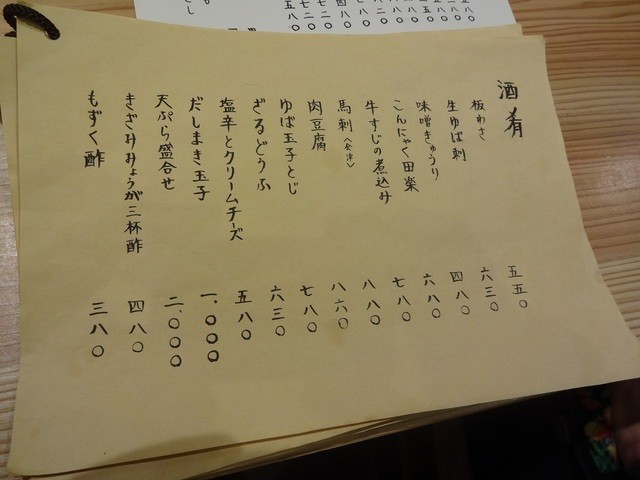 酒肴
板わさ 五五〇
生ゆば刺 六三〇
味噌きゅうり 四八〇
こんにゃく田楽 六八〇
牛すじの煮込み 七八〇
馬刺〈会津〉 八八〇
肉豆腐 八六〇
ゆば玉子とじ 七八〇
ざるどうふ 六三〇
塩辛とクリームチーズ 五八〇
だしまき玉子 一、〇〇〇
天ぷら盛合せ 二、〇〇〇
きざみみょうが三杯酢 四八〇
もずく酢 三八〇